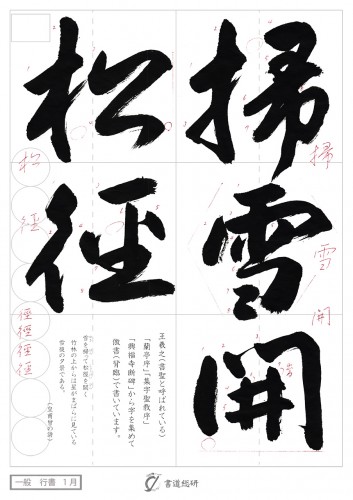 掃雪開
松徑
掃
雪
開
松
徑
徑
徑
徑
徑
王羲之(書聖と呼ばれている)
「蘭亭序」「集字聖教序」
「興福寺断碑」から字を集めて
倣書(背臨)で書いています。
雪を掃って松徑を開く
竹林の上からは星がまばらに見ている
雪後の夕景である。
一般 行書 1月
書道総研